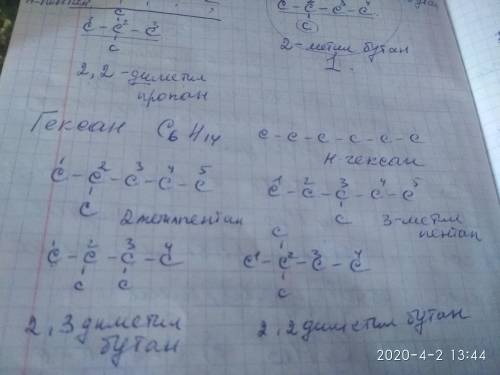 н-пентан
C
C¹-C²-C³
C
2,2-диметил
пропан
C-C²-C³-C⁴
C
2-метил бутан
1.
Гексан C₆H₁₄ C-C-C-C-C-C
н-гексан
C¹-C²-C³-C⁴-C⁵
C
2метилпентан
C¹-C²-C³-C⁴-C⁵
C
3-метил
пентан
C¹-C²-C³-C⁴
C C
2,3диметил
бутан
C
C¹-C²-C³-C⁴
C
2,2диметил бутан
2020-4-2 13:44